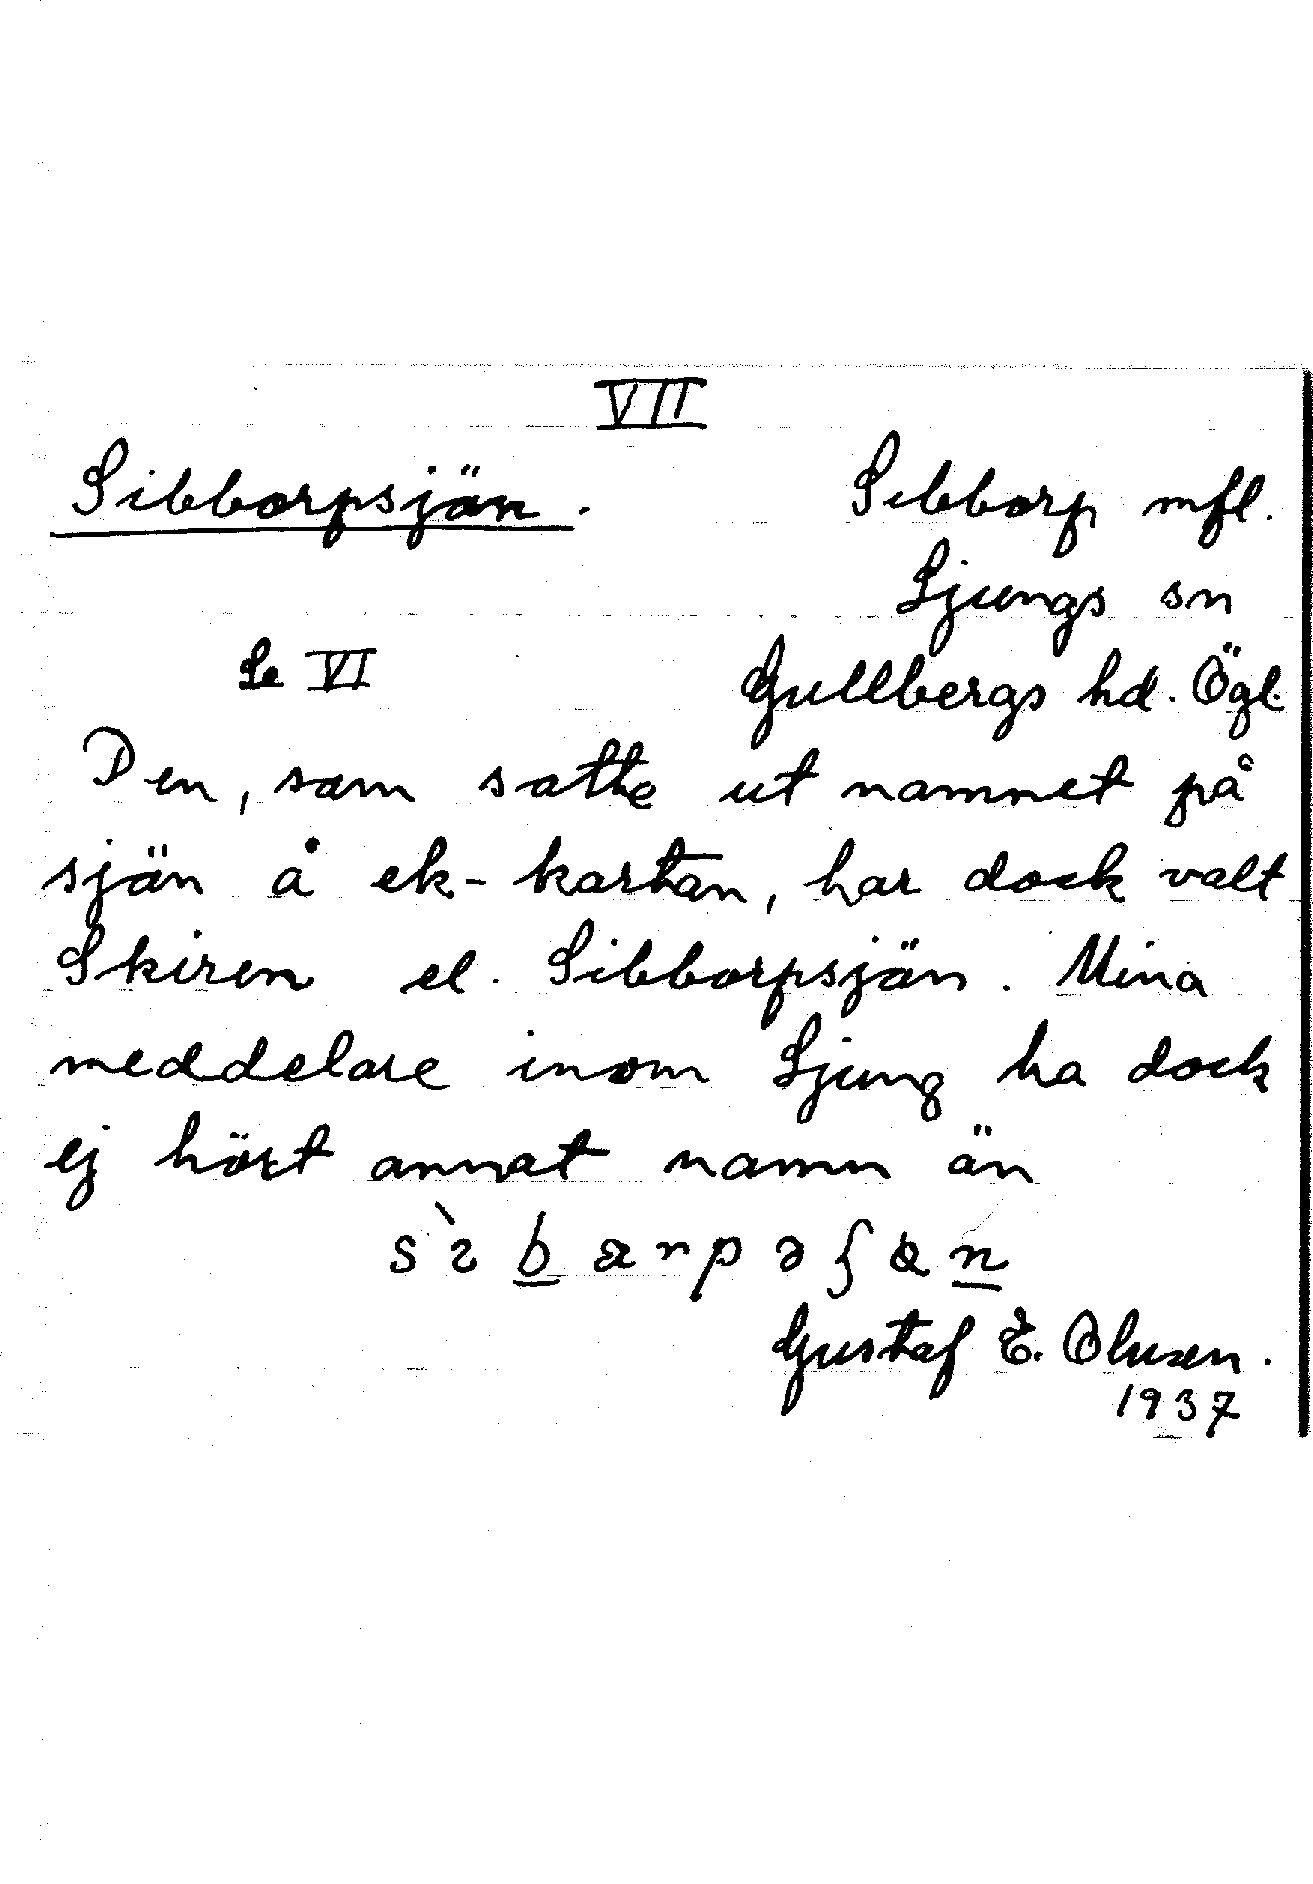 VII
Sibborpsjön. Sibborp mfl.
Ljungs sn
Se VI Gullbergs hd. Ögl.
Den, som satte ut namnet på
sjön å ek-kartan, har dock valt
Skiren el. Sibborpsjön. Mina
meddelare inom Ljung ha dock
ej hört annat namn än
Gustaf E. Olusen.
1937